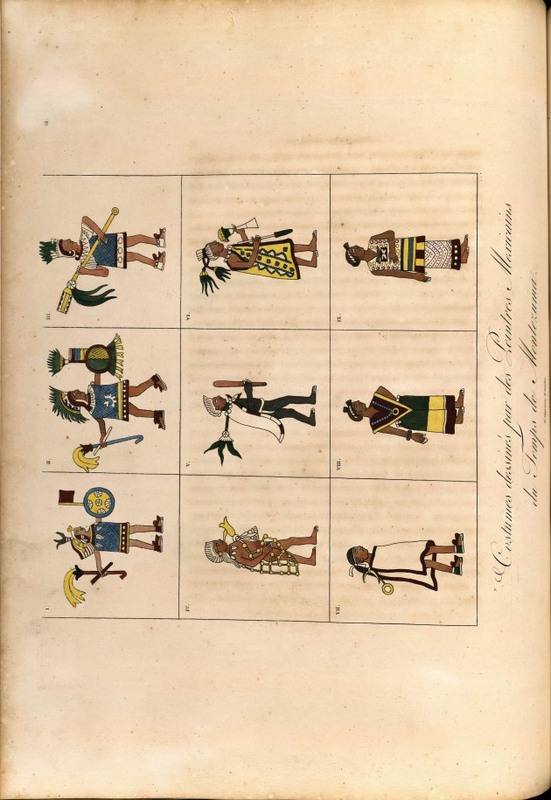 I II III
IV V VI
VII VIII IX
Costumes dessinés par des Peintres Mexicains
du Temps de Montezuma.